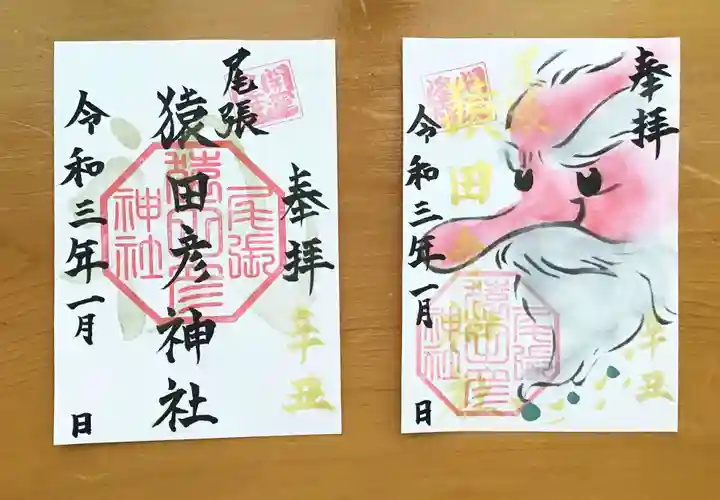 奉拝
辛丑
尾張
猿田彦神社
尾張
猿田彦
神社
令和三年一月
日
奉拝
辛丑
猿田
尾張
猿田彦
神社
令和三年一月
日